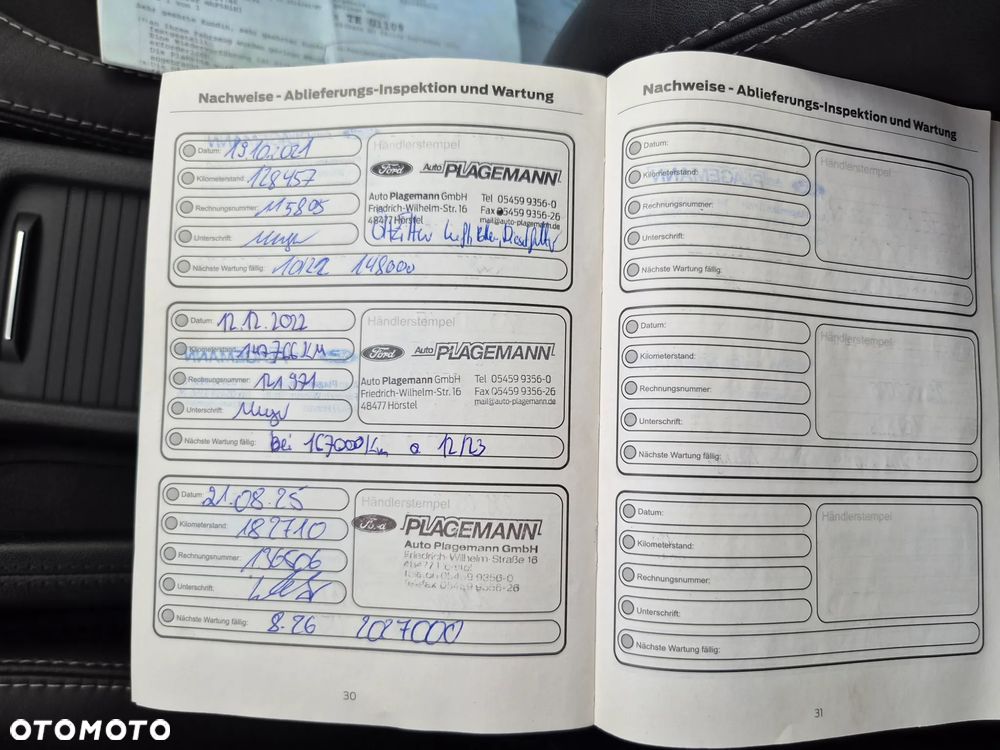 Nachweise - Ablieferungs-Inspektion und Wartung
Datum: 19.10.2021
Kilometerstand: 128457
Rechnungsnummer: 115805
Unterschrift:
Nächste Wartung fällig: 10/22 148000
Händlerstempel
Ford Auto PLAGEMANN
Auto Plagemann GmbH Tel 05459 9356-0
Friedrich-Wilhelm-Str. 16 Fax 05459 9356-26
48477 Hörstel mail@auto-plagemann.de
Datum: 12.12.2022
Kilometerstand: 147766 KM
Rechnungsnummer: 121971
Unterschrift:
Nächste Wartung fällig: bei 167000 Km o 12/23
Händlerstempel
Ford Auto PLAGEMANN
Auto Plagemann GmbH Tel 05459 9356-0
Friedrich-Wilhelm-Str. 16 Fax 05459 9356-26
48477 Hörstel mail@auto-plagemann.de
Datum: 21.08.25
Kilometerstand: 182710
Rechnungsnummer: 136506
Unterschrift:
Nächste Wartung fällig: 8.26 207000
Händlerstempel
Ford PLAGEMANN
Auto Plagemann GmbH
Friedrich-Wilhelm-Straße 16
05459 9356-0
Telefax 05459 9356-26
30
Nachweise - Ablieferungs-Inspektion und Wartung
Datum:
Kilometerstand:
Rechnungsnummer:
Unterschrift:
Nächste Wartung fällig:
Händlerstempel
Datum:
Kilometerstand:
Rechnungsnummer:
Unterschrift:
Nächste Wartung fällig:
Händlerstempel
Datum:
Kilometerstand:
Rechnungsnummer:
Unterschrift:
Nächste Wartung fällig:
Händlerstempel
31
OTOMOTO